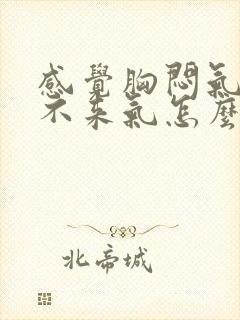 感覺胸悶氣
不来氣怎麼
北帝城